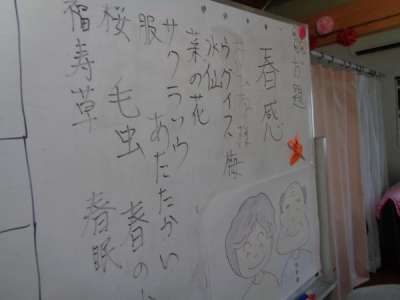 春感
ウグイス 梅
水仙
菜の花
サクラソウ あたたかい
服
桜 毛虫 春の
福寿草 春眠